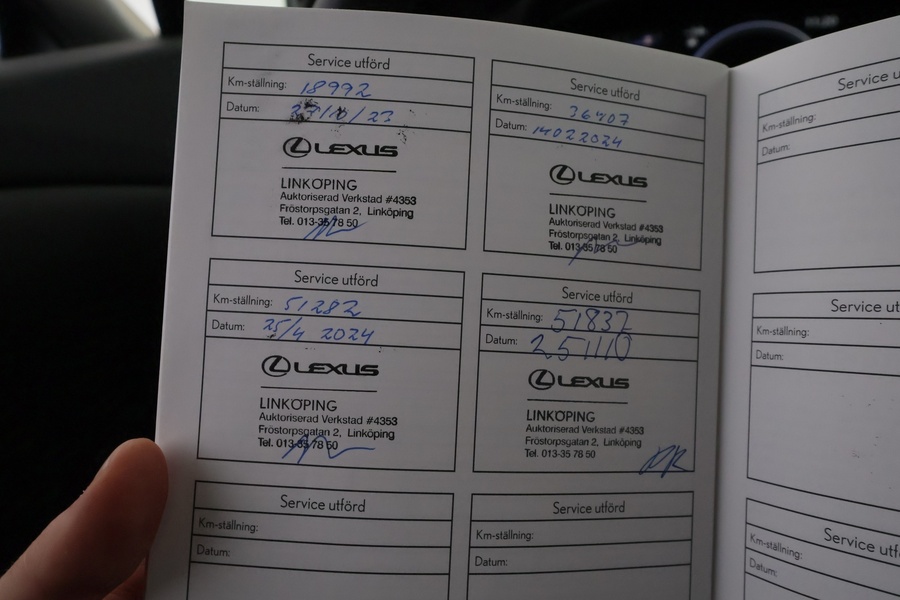 Service utförd
Km-ställning: 18992
Datum: /10/23
LEXUS
LINKÖPING
Auktoriserad Verkstad #4353
Fröstorpsgatan 2, Linköping
Tel. 013-35 78 50
Service utförd
Km-ställning: 36407
Datum: 14022024
LEXUS
LINKÖPING
Auktoriserad Verkstad #4353
Fröstorpsgatan 2, Linköping
Tel. 013-35 78 50
Service utförd
Km-ställning: 51282
Datum: 25/4 2024
LEXUS
LINKÖPING
Auktoriserad Verkstad #4353
Fröstorpsgatan 2, Linköping
Tel. 013-35 78 50
Service utförd
Km-ställning: 51832
Datum: 251110
LEXUS
LINKÖPING
Auktoriserad Verkstad #4353
Fröstorpsgatan 2, Linköping
Tel. 013-35 78 50
Service utförd
Km-ställning:
Datum:
Service utförd
Km-ställning:
Datum:
Service u
Km-ställning:
Datum:
Service ut
Km-ställning:
Datum:
Service utf
Km-ställning:
Datum: